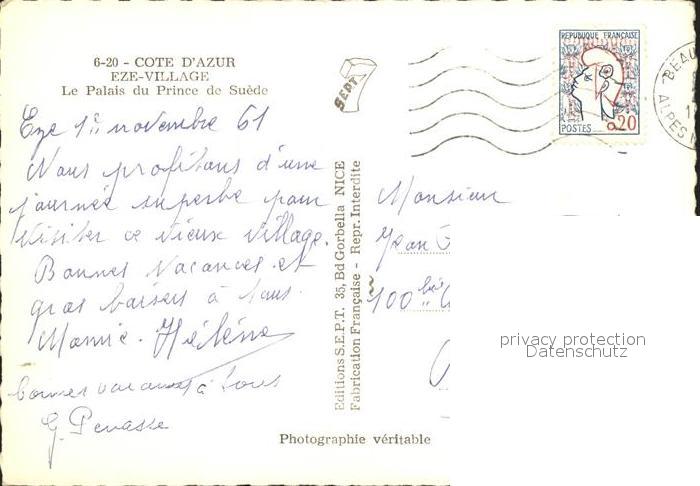 6-20 - COTE D'AZUR
EZE-VILLAGE
Le Palais du Prince de Suède
Eze 1er novembre 61
Nous profitons d'une
journée superbe pour
visiter ce vieux village.
Bonnes vacances et
gros baisers à tous.
Mamie. Hélène
bonnes vacances à tous
G. Penasse
SEPT
Editions S.E.P.T. 35, Bd Gorbella NICE
Fabrication Française - Repr. Interdite
Photographie véritable
REPUBLIQUE FRANÇAISE
POSTES 0,20
BEAU
ALPES
Monsieur
Jean
100 bis
privacy protection
Datenschutz